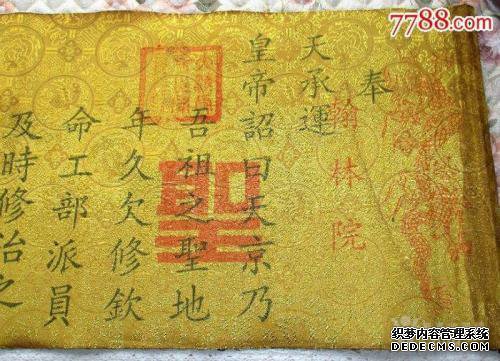 奉
翰林院
天承運
皇帝詔曰天京乃
吾祖之聖地
年久欠修欽
命工部派員
及時修治之
聖
7788.com
织梦内容管理系统
DEDECMS.COM